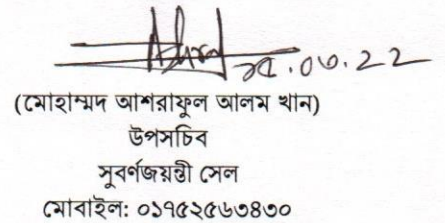 (মোহাম্মদ আশরাফুল আলম খান)
উপসচিব
সুবর্ণজয়ন্তী সেল
মোবাইল: ০১৭৫২৫৬৩৪৩০